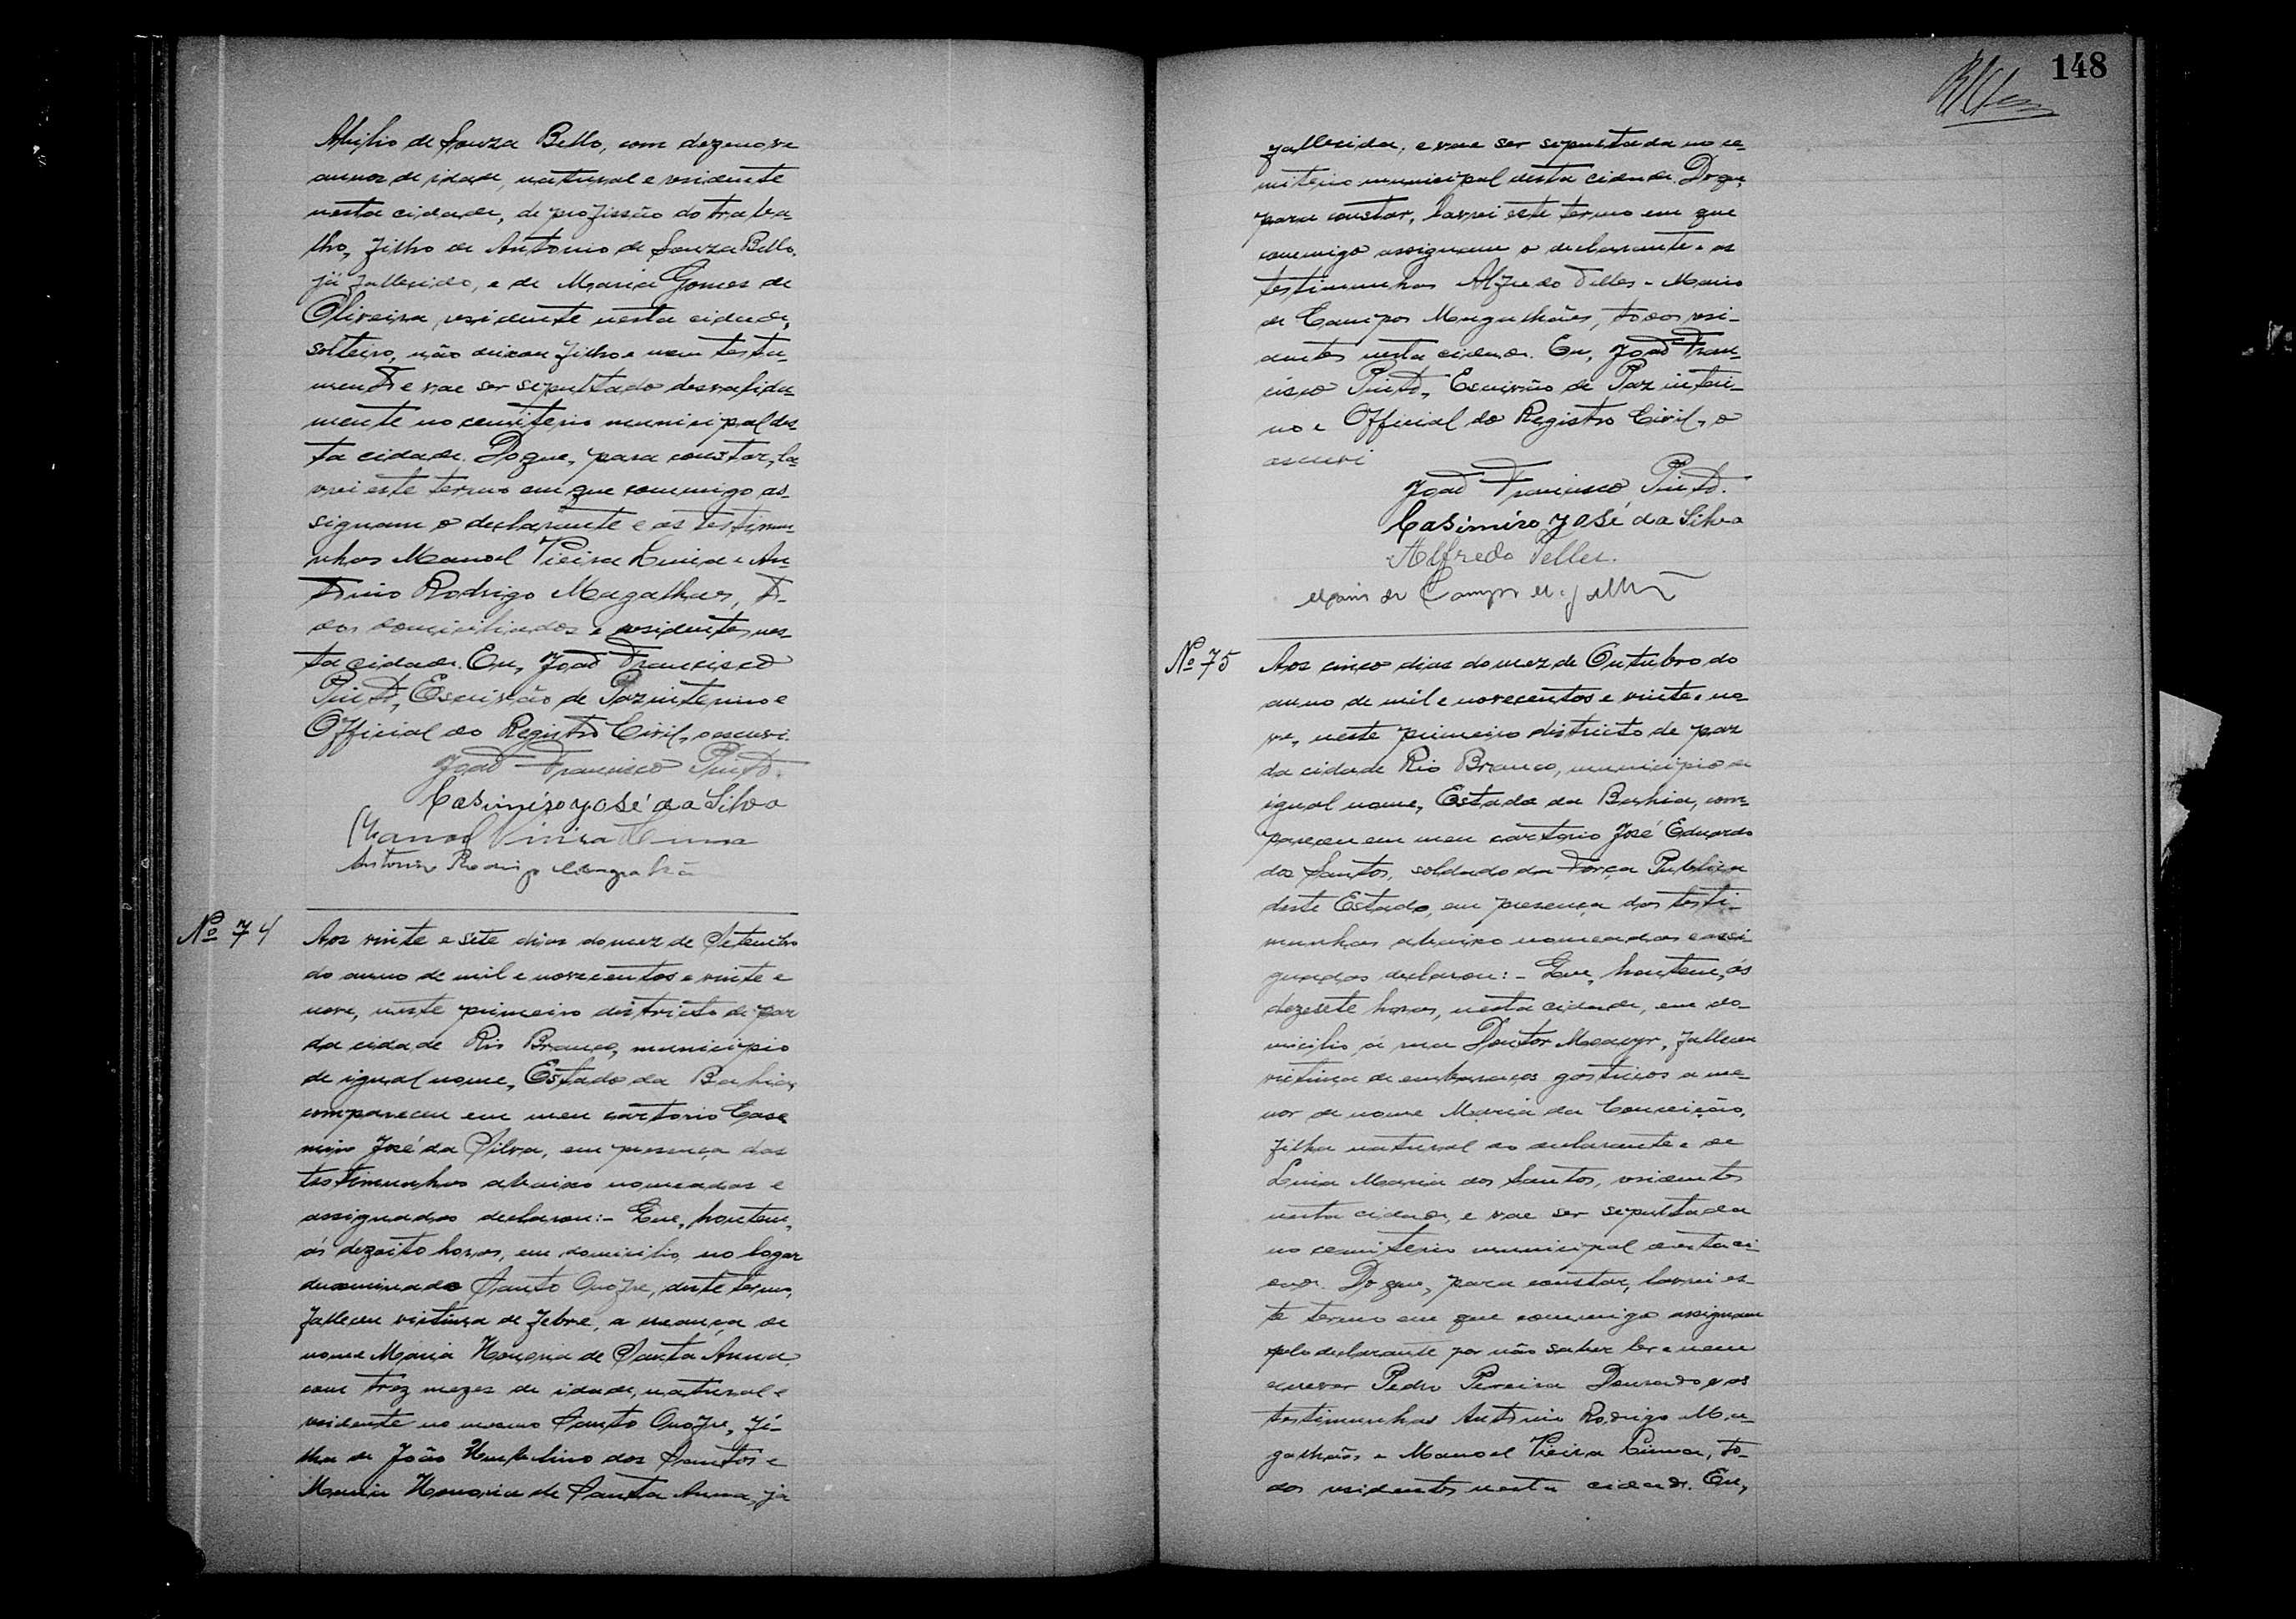 Abilio de Souza Bello, com dezenove
annos de idade, natural e residente
nesta cidade, de profissão do traba-
lho, filho de Antonio de Souza Bello,
já fallecido, e de Maria Gomes de
Oliveira, residente nesta cidade,
solteiro, não deixou filho e nem testa-
mento e vae ser sepultado desvalida-
mente no cemiterio municipal des-
ta cidade. Do que, para constar, la-
vrei este termo em que commigo as-
signam o declarante e as testimu-
nhas Manoel Vieira Lima e An-
tonio Rodrigo Magalhães, to-
dos domiciliados e residentes nes-
ta cidade. Eu, João Francisco
Pinto, Escrivão de Paz interino e
Official do Registro Civil, o escrevi.
João Francisco Pinto.
Casimiro José da Silva
Manoel Vieira Lima
Antonio Rodrigo Magalhã
Nº 74
Aos vinte e sete dias do mez de Setembro
do anno de mil e novecentos e vinte e
nove, neste primeiro districto de paz
da cidade Rio Branco, municipio
de igual nome, Estado da Bahia,
compareceu em meu cartorio Case
miro José da Silva, em presença das
testimunhas abaixo nomeadas e
assignadas declarou:- Que, hontem,
ás dezoito horas, em domicilio, no logar
denominado Santo Onofre, deste termo,
falleceu victima de febre, a creança de
nome Maria Honoria de Santa Anna,
com trez mezes de idade, natural e
residente no mesmo Santo Onofre, fi-
lha de João Umbelino dos Santos e
Maria Honoria de Santa Anna, já
148
fallecida, e vae ser sepultada no ce-
miterio municipal desta cidade. Do que,
para constar, lavrei este termo em que
commigo assignam o declarante e as
testimunhas Alfredo Telles e Mario
de Campos Magalhães, todos resi-
dentes nesta cidade. Eu, João Fran-
cisco Pinto, Escrivão de Paz interi-
no e Official do Registro Civil, o
escrevi
João Francisco Pinto.
Casimiro José da Silva
Alfredo Telles.
Mario de Campos
Nº 75
Aos cinco dias do mez de Outubro do
anno de mil e novecentos e vinte e no-
ve, neste primeiro districto de paz
da cidade Rio Branco, municipio de
igual nome, Estado da Bahia, com-
pareceu em meu cartorio José Eduardo
dos Santos, soldado da Força Publica
deste Estado, em presença das testi-
munhas abaixo nomeadas e assi-
gnadas declarou:- Que, hontem, ás
dezesete horas, nesta cidade, em do-
micilio á rua Doutor Moacyr, falleceu
victima de embaraços gastricos a me-
nor de nome Maria da Conceição,
filha natural do declarante e de
Luiza Maria dos Santos, residentes
nesta cidade, e vae ser sepultada
no cemiterio municipal desta ci-
dade. Do que, para constar, lavrei es-
te termo em que commigo assignam
pelo declarante por não saber ler e nem
escrever Pedro Pereira Dourado e as
testimunhas Antonio Rodrigo Ma-
galhães e Manoel Vieira Lima, to-
dos residentes nesta cidade. Eu,